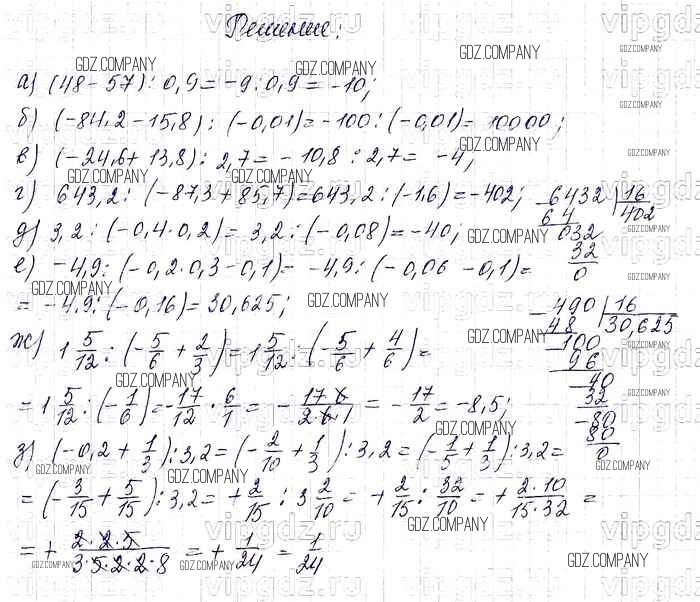 Решение:
а) (48-57) : 0,9 = -9 : 0,9 = -10;
б) (-84,2-15,8) : (-0,01) = -100 : (-0,01) = 10000;
в) (-24,6+13,8) : 2,7 = -10,8 : 2,7 = -4;
г) 643,2 : (-87,3+85,7) = 643,2 : (-1,6) = -402;
д) 3,2 : (-0,4·0,2) = 3,2 : (-0,08) = -40;
е) -4,9 : (-0,2·0,3-0,1) = -4,9 : (-0,06-0,1) =
= -4,9 : (-0,16) = 30,625;
ж) 1 5/12 : (-5/6 + 2/3) = 1 5/12 : (-5/6 + 4/6) =
= 1 5/12 : (-1/6) = -17/12 · 6/1 = -17·6/2·6·1 = -17/2 = -8,5;
з) (-0,2 + 1/3) : 3,2 = (-2/10 + 1/3) : 3,2 = (-1/5 + 1/3) : 3,2 =
= (-3/15 + 5/15) : 3,2 = +2/15 : 3 2/10 = +2/15 : 32/10 = +2·10/15·32 =
= + 2·2·5/3·5·2·2·8 = +1/24 = 1/24
-6432 | 16
64 402
032
32
0
-490 | 16
48 30,625
-100
96
-40
32
-80
80
0
GDZ.COMPANY
vipgdz.ru